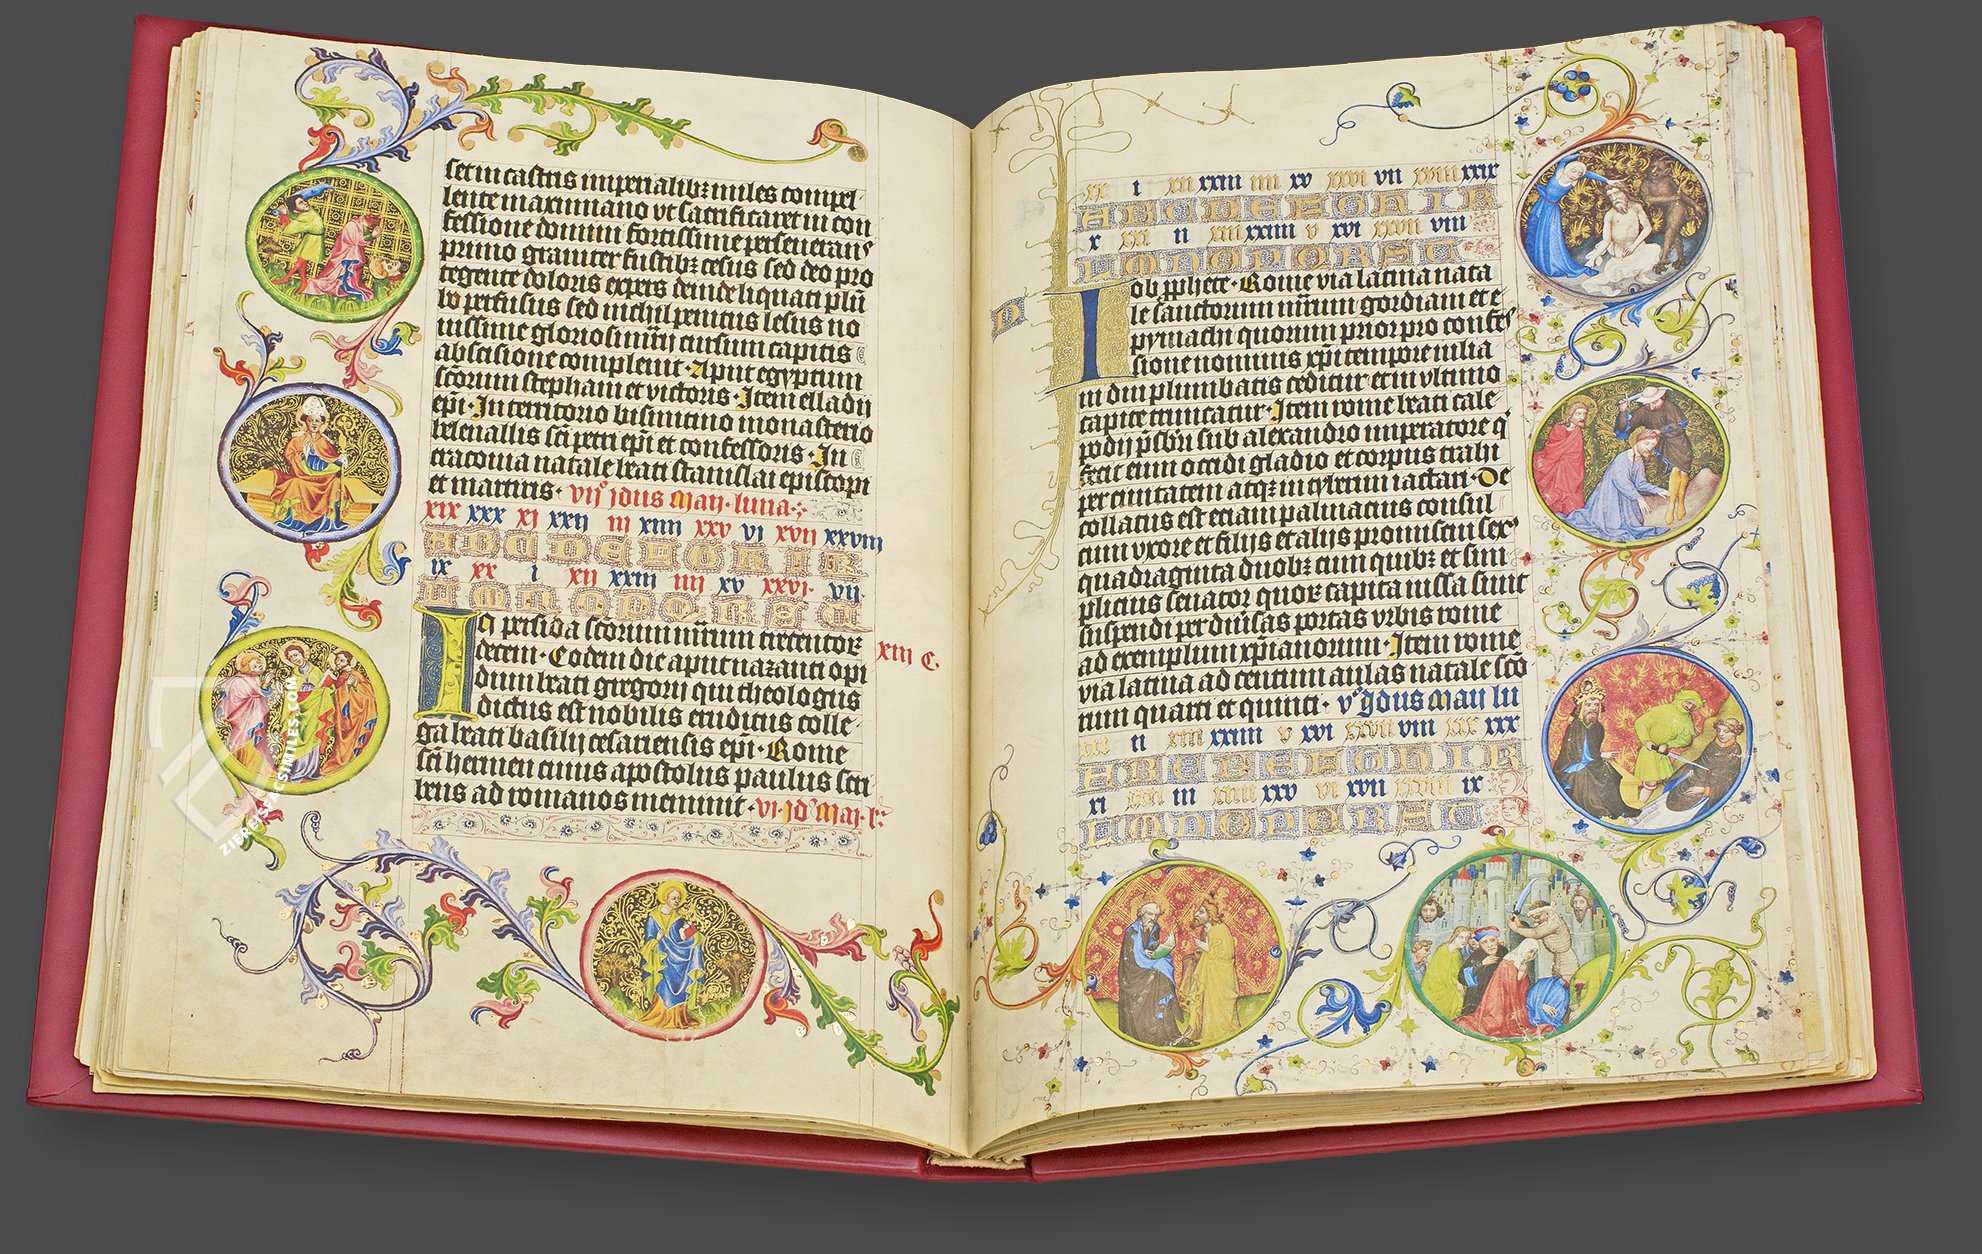 set in castris imperialibꝫ miles compel-
lente maximiano vt sacrificaret in con
fessione domini fortissime perseverans
primo graviter fustibꝫ cesus sed deo pro
tegente doloris expers deinde liquati plū
bo perfusus sed nichil penitus lesus no
vissime gloriosi mrij cursum capitis
abscisione complevit · Aput egyptum
scorum stephani et victoris · Item elladij
epi · In territorio bisuntino monasterio
belevallis sci petri epi et confessoris · In
cracovia natale beati stanislai episcopi
et martiris · vijº jdus Maij · luna ·
xix xxx xj xxij iij xiiij xxv vj xvij xxviij
A B C D E F G H I K
ix xx i xij xxiii iiij xv xxvi vij
L M N O P Q R S T
In persida scorum mrm trecentor
decem · Eodem die aput nazanti opi
dum beati gregorij qui theologus
dictus est nobilis eruditus colle-
ga beati basilij cesariensis epi · Rome
sci hermen cuius apostolus paulus scri
bens ad romanos meminit · vi · jdº Maij · l ·
xiij C.
xx i xii xxiii iiii xv xxvi vii xviii xxix
A B C D E F G H I K
x xxi ii xiii xxiiii v xvi xxvii viii
L M N O P Q R S T
D
Iob pphete · Rome via latina nata
le sanctorum mrum gordiani et e
pymachi quorum prior pro confes
sione nominis xpi tempore iulia
ni diu plumbatis ceditur et in vltimo
capite truncatur · Item rome beati cale
podij psbri sub alexandro imperatore q
fecit eum occidi gladio et corpus trahi
per civitatem atqꝫ in tyberim iactari · De
collatus est etiam palmatius consul
cum vxore et filijs et alijs promiscui sex
quadraginta duobꝫ cum quibꝫ et sim
plicius senator quoꝝ capita iussa sunt
suspendi per diversas portas vrbis rome
ad exemplum xpianorum · Item rome
via latina ad centum aulas natale sco
rum quarti et quinti · vº Jdus Maij lu
xxi ii xiii xxiiii v xvi xxvii viii xix xxx
A B C D E F G H I K
xi xxii iii xiiii xxv vi xvii xxviii ix
L M N O P Q R S T
ZIEREIS FACSIMILES.COM